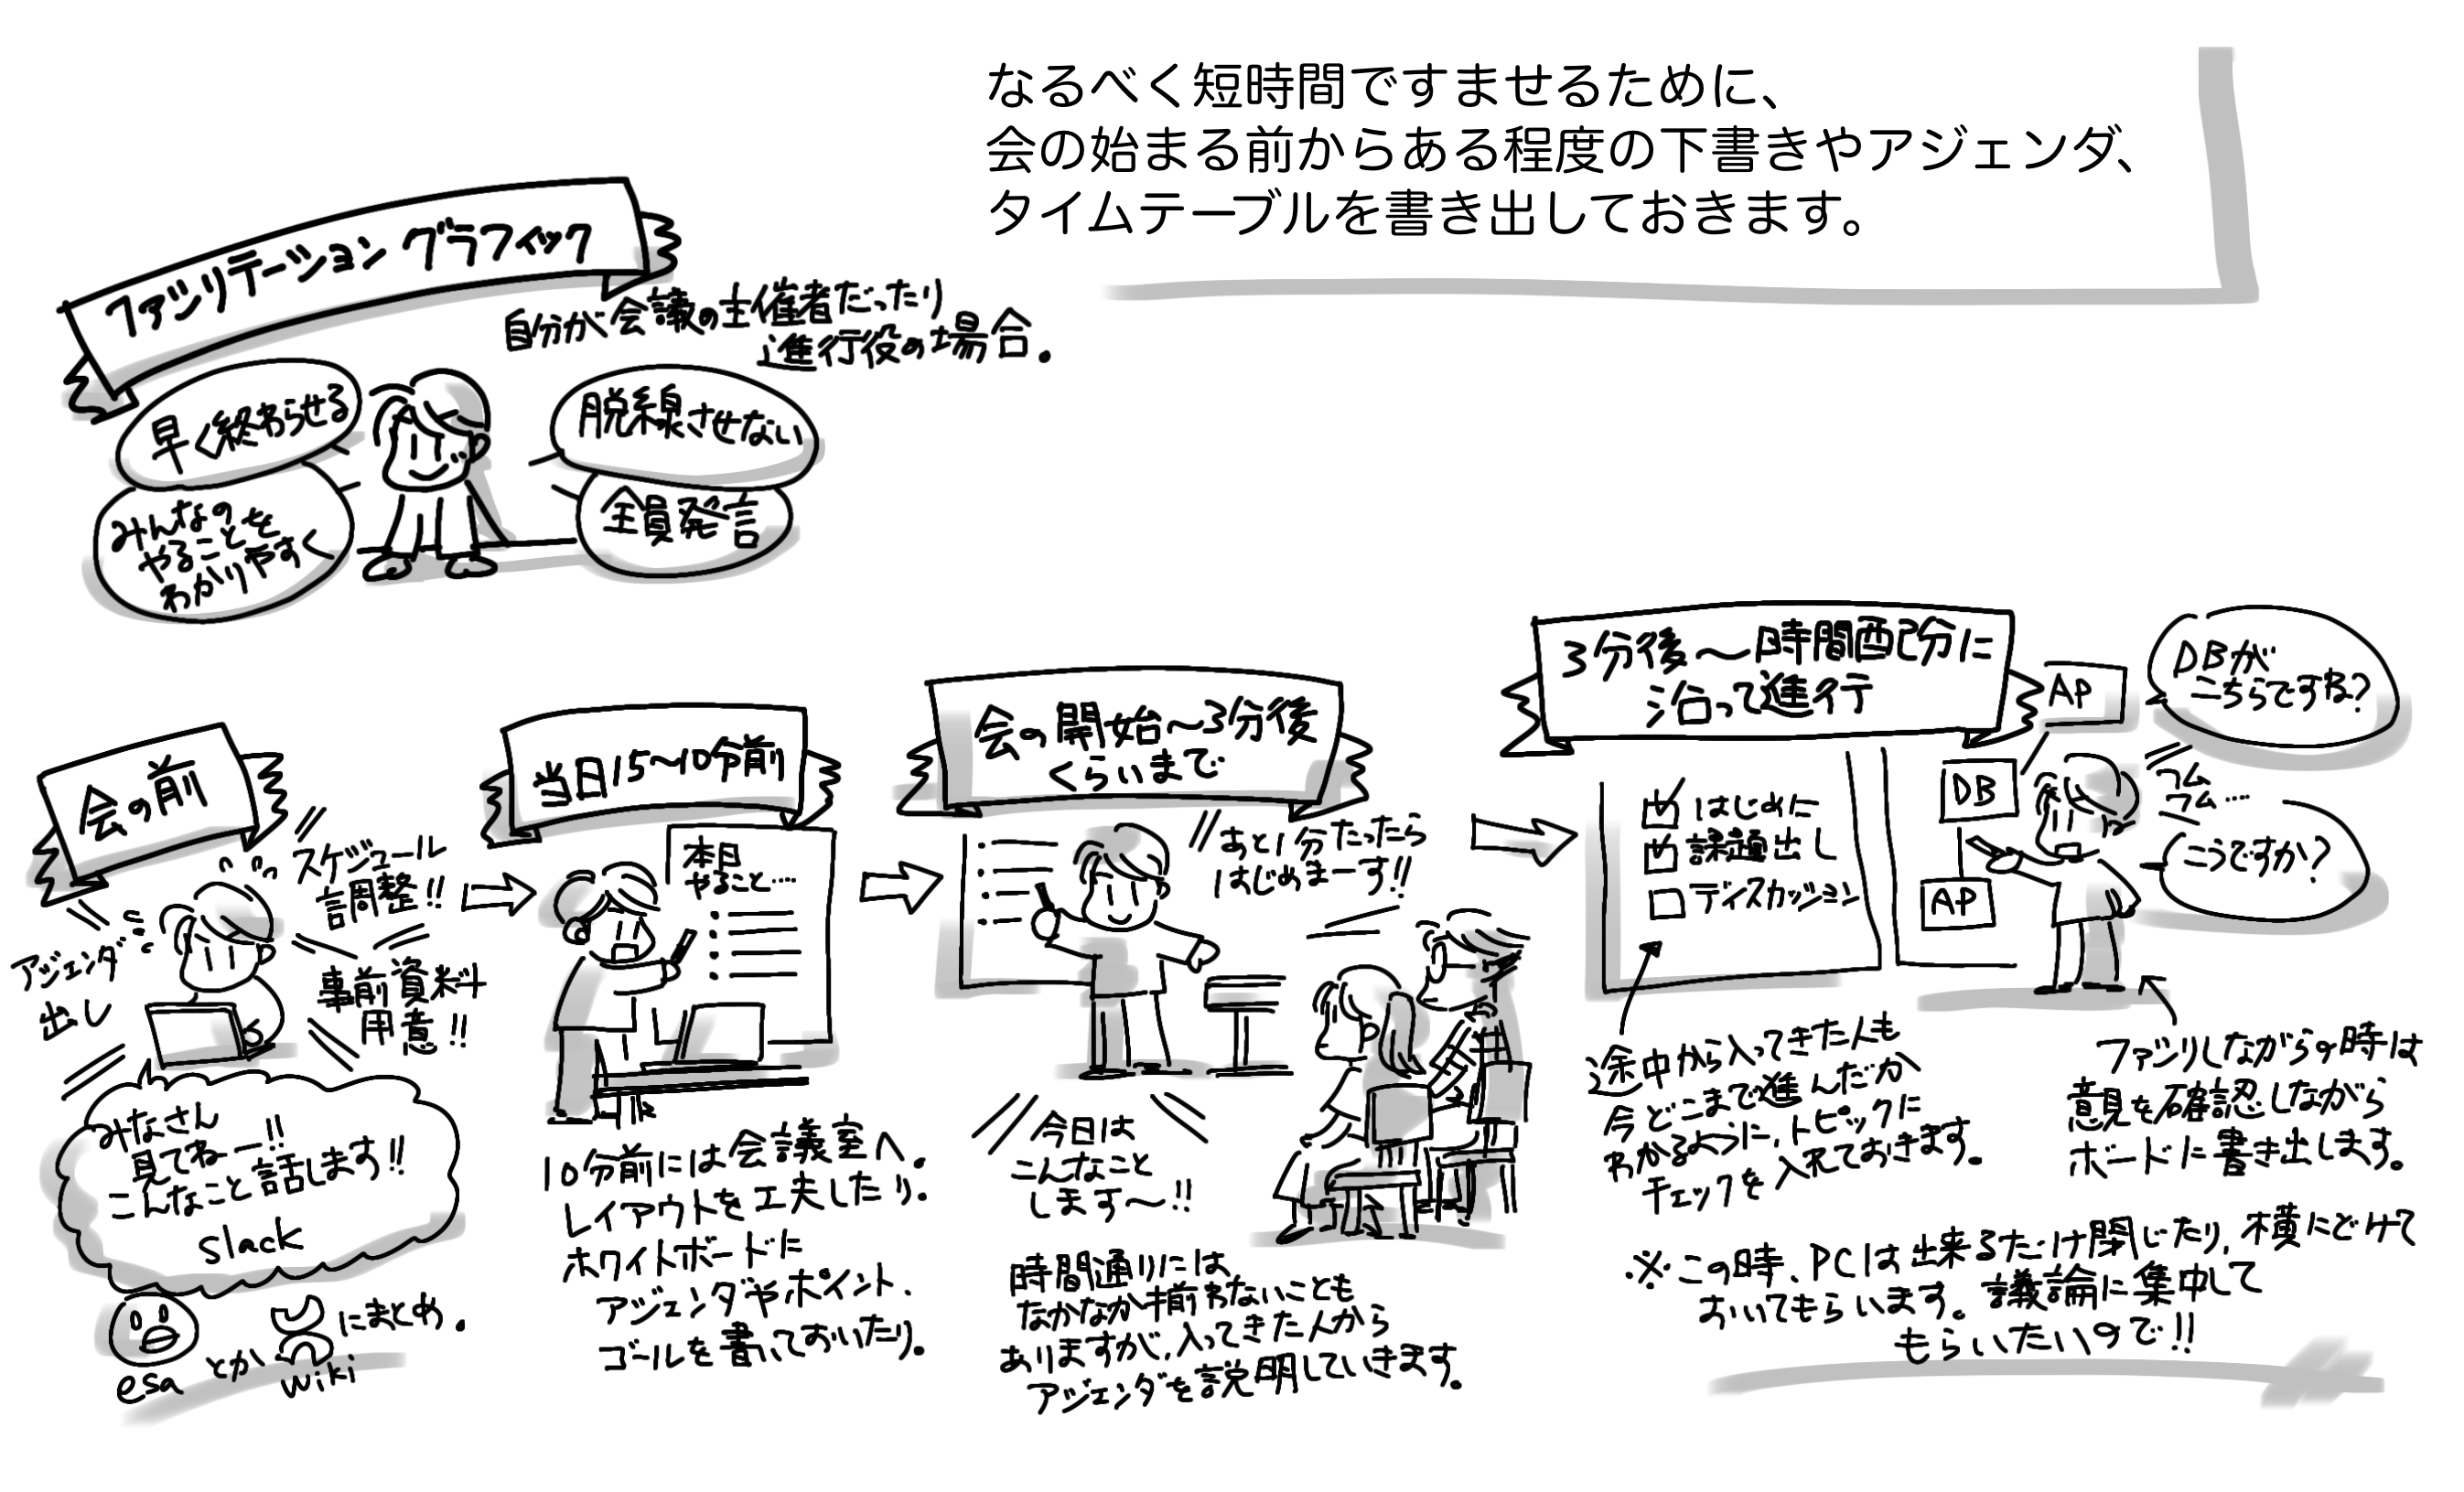 なるべく短時間ですませるために、
会の始まる前からある程度の下書きやアジェンダ、
タイムテーブルを書き出しておきます。
ファシリテーション グラフィック
自分が会議の主催者だったり
進行役の場合。
早く終わらせる
みんなの
やることを
わかりやすく
脱線させない
全員発言
会の前
スケジュール
調整!!
アジェンダ
出し
事前資料
用意!!
みなさん
見てねー!!
こんなこと話します!!
slack
esa
とか
wiki
にまとめ.
当日15~10分前
本日
やること....
10分前には会議室へ.
レイアウトを工夫したり.
ホワイトボードに
アジェンダやポイント、
ゴールを書いておいたり.
会の開始~3分後
くらいまで
あと1分たったら
はじめまーす!!
今日は
こんなこと
します~!!
時間通りには
なかなか揃わないことも
ありますが,入ってきた人から
アジェンダを説明していきます.
3分後~時間配分に
沿って進行
はじめに
課題出し
ディスカッション
AP
DB
AP
DBが
こちらですね?
フム
フム....
こうですか?
途中から入ってきた人も
今どこまで進んだか
わかるように,トピックに
チェックを入れておきます.
ファシリしながらの時は
意見を確認しながら
ボードに書き出します.
※この時、PCは出来るだけ閉じたり,横にどけて
おいてもらいます。議論に集中して
もらいたいので!!